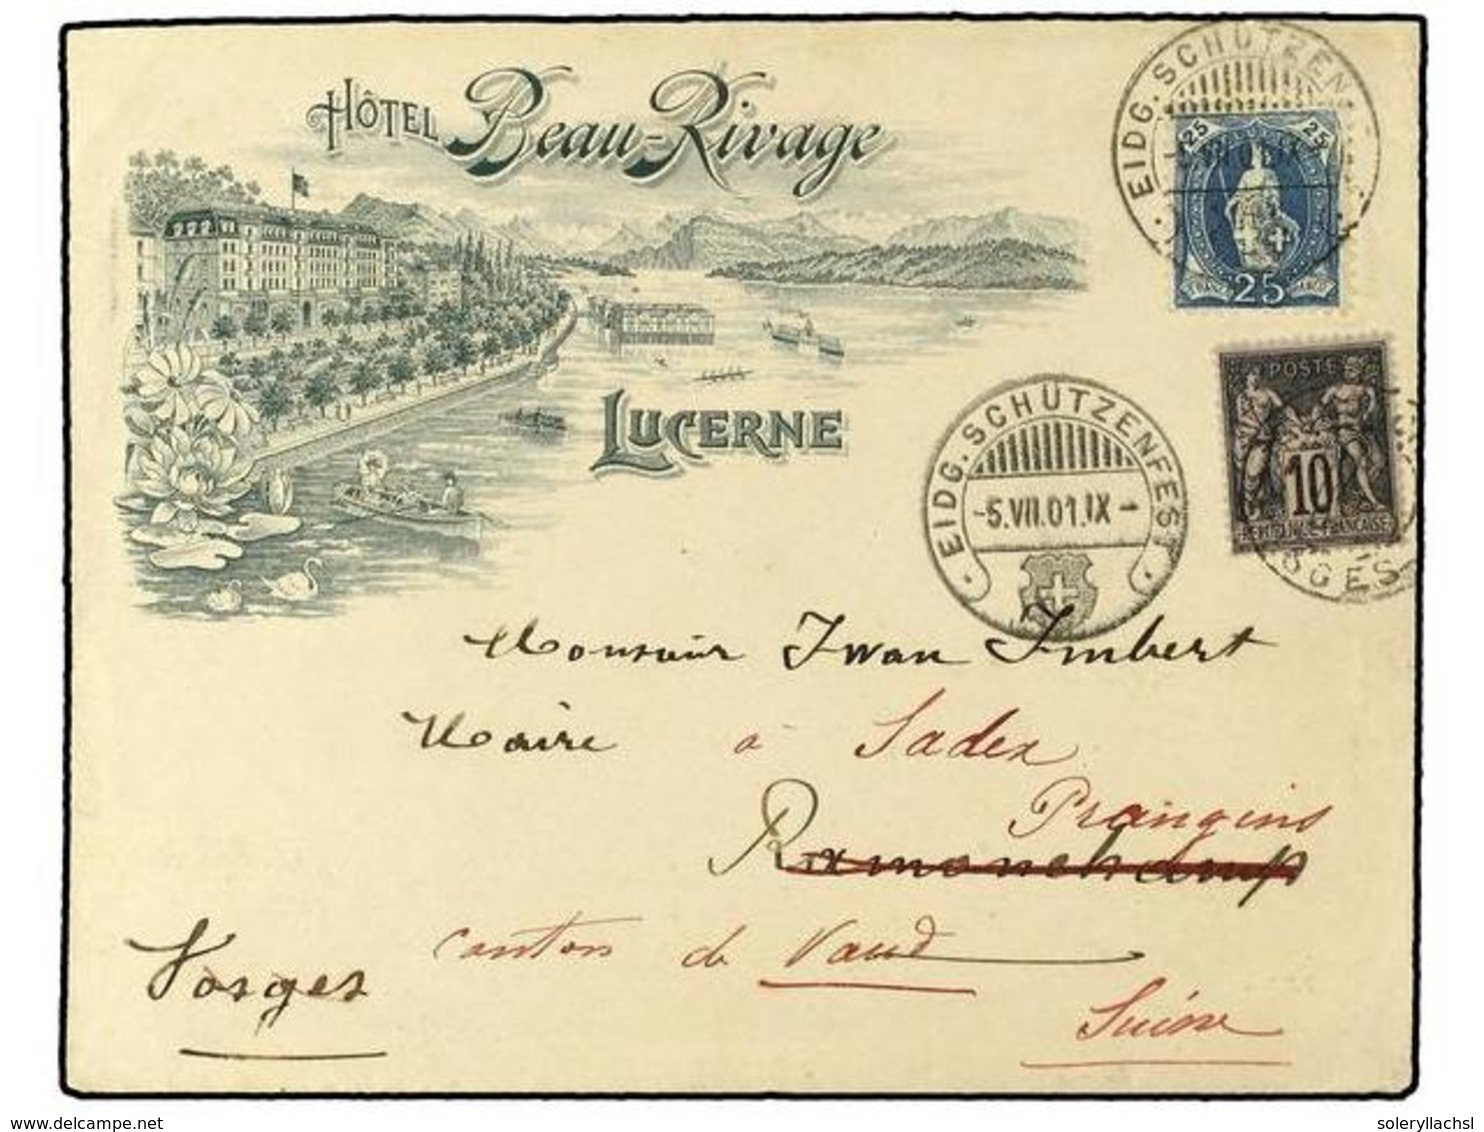 HÔTEL Beau-Rivage
LUCERNE
EIDG. SCHÜTZEN
25 25
25
EIDG. SCHÜTZENFEST
-5.VII.01.IX-
POSTE
10
REPUBLIQUE FRANÇAISE
OGES
Monsieur Iwan Imbert
Maire à Sadex
Prangins
Ramonchamp
Vosges canton de Vaud
Suisse
www.delcampe.net
soleryllachsl